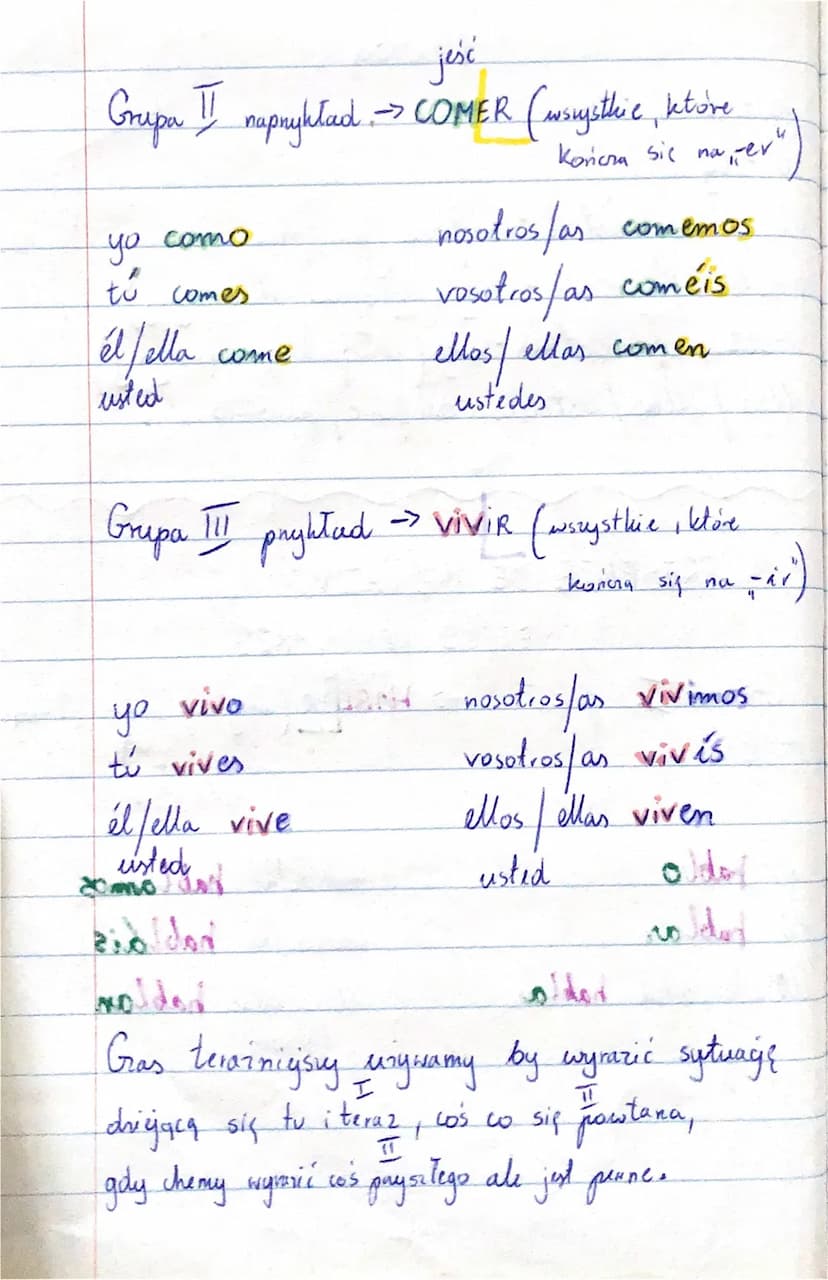 jeść
Grupa II naprzykład → COMER (wszystkie, które
kończą się na „-er")
yo como nosotros/as comemos
tú comes vosotros/as coméis
él/ella come ellos/ellas comen
usted ustedes
Grupa III przykład → ViViR (wszystkie, które
kończą się na „-ir")
yo vivo nosotros/as vivimos
tú vives vosotros/as vivís
él/ella vive ellos/ellas viven
usted usted
Czas teraźniejszy używamy by wyrazić sytuację
I II
dziejącą się tu i teraz, coś co się powtarza,
II
gdy chemy wyrazić coś przyszłego ale jest pewne.